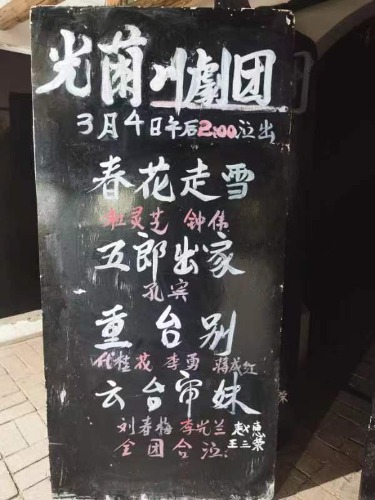 光蘭川劇团
3月4日午后2:00泣出
春花走雪
杜灵芝 钟伟
五郎出家
孔宾
重台别
代桂花 李勇 蒋成红
云台帘妹
刘春梅 李光兰 赵惠
王三荣
全团合泣: